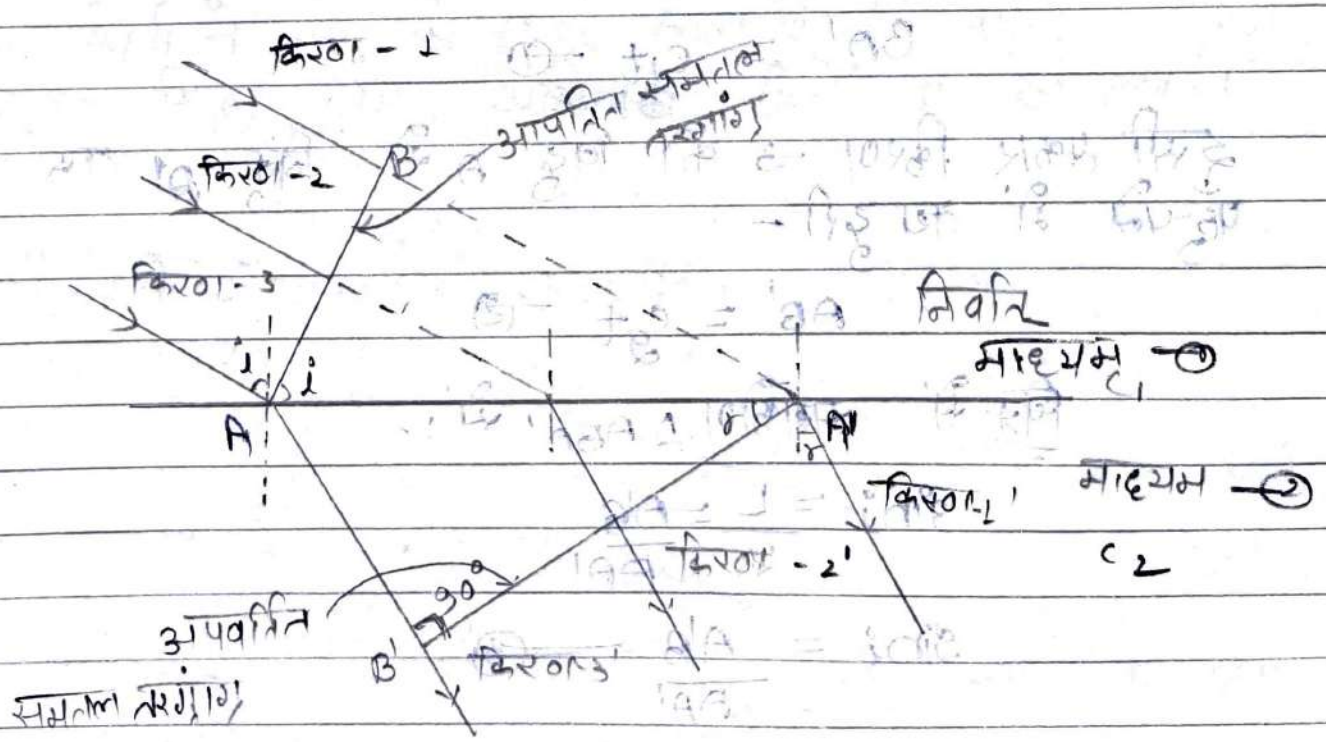 किरण - 1
आपतित समतल
तरंगाग्र
B
किरण - 2
किरण - 3
निर्वात
माध्यम - ①
C1
i i
A
r A'
r
किरण - 1'
माध्यम - ②
किरण - 2'
C2
90°
अपवर्तित
समतल तरंगाग्र
B'
किरण - 3'